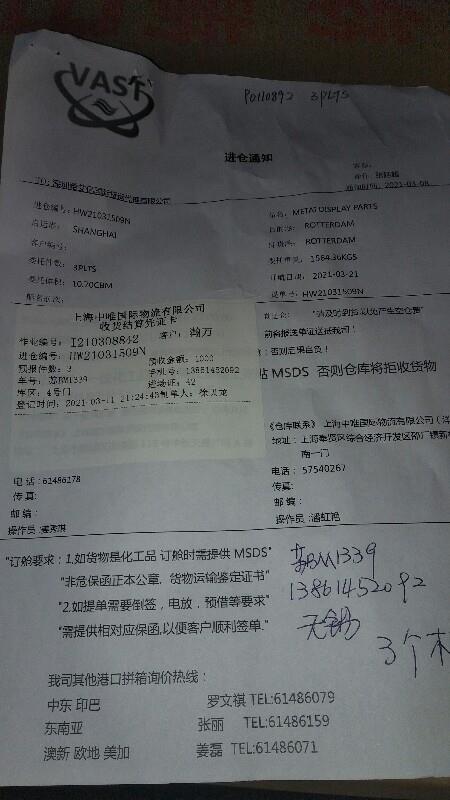 VAST
P0110892 3PLTS
进仓通知
2021-03-08
进仓编号: HW21031509N
品名: METAL DISPLAY PARTS
SHANGHAI
ROTTERDAM
客户编号:
ROTTERDAM
委托件数: 3PLTS
委托重量: 1584.36KGS
委托体积: 10.70CBM
开航日期: 2021-03-21
HW21031509N
上海中唯国际物流有限公司
收货结算凭证卡
作业编号: I210308842
客户: 瀚万
进仓编号: HW21031509N
预报件数: 3
预收金额: 1000
车号: 苏BM1339
手机号: 13861452092
库区: 4号门
进场证: 42
登记时间: 2021-03-11 21:24:43
制单人: 徐天龙
否则后果自负!
MSDS 否则仓库将拒收货物
《仓库联系》 上海中唯国际物流有限公司
地址: 上海奉贤区综合经济开发区
南一门
电话: 61486178
电话: 57540267
传真:
传真:
邮编:
邮编:
操作员:
操作员: 潘虹艳
"订舱要求: 1.如货物是化工品 订舱时需提供 MSDS"
"非危保函正本公章. 货物运输鉴定证书"
"2.如提单需要倒签, 电放, 预借等要求"
"需提供相对应保函.以便客户顺利签单."
苏BM1339
13861452092
无锡
3个木
我司其他港口拼箱询价热线:
中东 印巴 罗文祺 TEL:61486079
东南亚 张丽 TEL:61486159
澳新 欧地 美加 姜磊 TEL:61486071